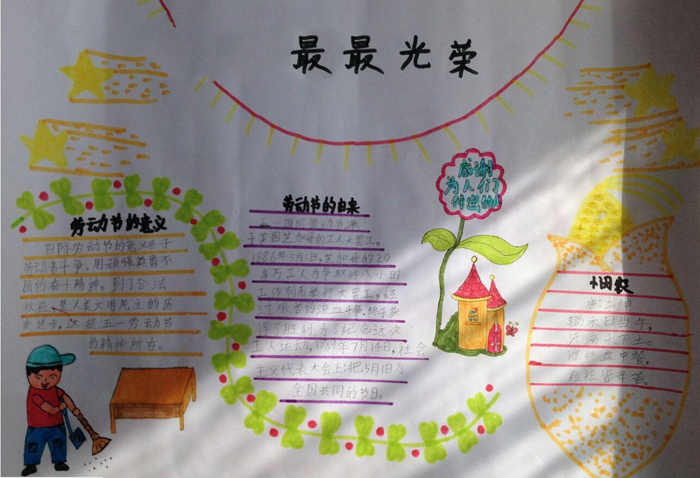 最最光荣
劳动节的意义
国际劳动节的意义在于
劳动者斗争，用顽强英勇不
屈的奋斗精神，到了合法
权益，是人类文明民主的历
史进步，这是五一劳动节
的精神所在。
劳动节的由来
五一国际劳动节来
于美国芝加哥的工人大罢工。
1886年5月1日，芝加哥的20
多万工人为争取八小时
工作制而举行大罢工，经
过艰苦的流血斗争，终于获
得了胜利，为了纪念这次
工人运动，1889年7月14日，社会
主义代表大会上：把5月1日为
全国共同的节日。
感谢
为人们
付出的人
锄禾日当午，
汗滴禾下土。
谁知盘中餐，
粒粒皆辛苦。